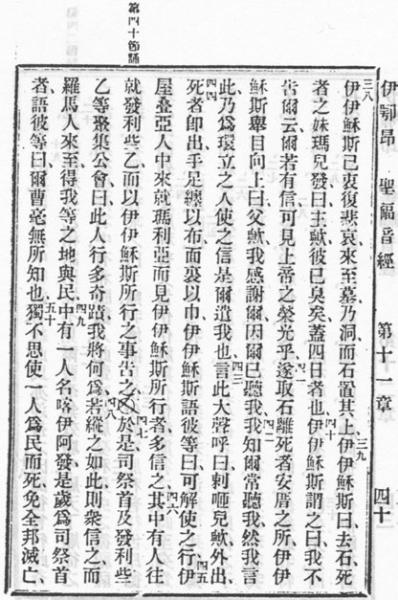 伊鄂昂 聖福音經 第十一章 四十
三八伊伊穌斯已衷復悲哀、來至墓乃洞、而石置其上、三九伊伊穌斯曰、去石、死
者之妹瑪兒發曰、主歟、彼已臭矣、蓋四日者也、四十伊伊穌斯謂之曰、我不
告爾云、爾若有信、可見上帝之榮光乎、四一遂取石離死者安厝之所、伊伊
穌斯舉目向上曰、父歟、我感謝爾、因爾已聽我、四二我知爾常聽我、然我言
此乃爲環立之人、使之信是爾遣我也、四三言此大聲呼曰、剌咂兒歟、外出、
四四死者卽出、手足纏以布、而面裹以巾、伊伊穌斯語彼等曰、可解使之行、四五伊
屋疊亞人中、來就瑪利亞、而見伊伊穌斯所行者、多信之、四六其中有人往
就發利些乙、而以伊伊穌斯所行之事告之、四七於是司祭首及發利些
乙等聚集公會曰、此人行多奇蹟、我將何爲、四八若縱之如此、則衆信之、而
羅馬人來至、得我等之地與民、四九中有一人名喀伊阿發、是歲爲司祭首
者、語彼等曰、爾曹毫無所知也、五十獨不思使一人爲民而死、免全邦滅亡、
第四十節誦